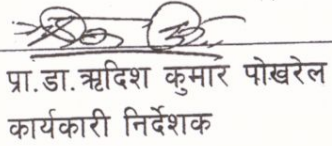 प्रा.डा.ऋदिश कुमार पोखरेल
कार्यकारी निर्देशक